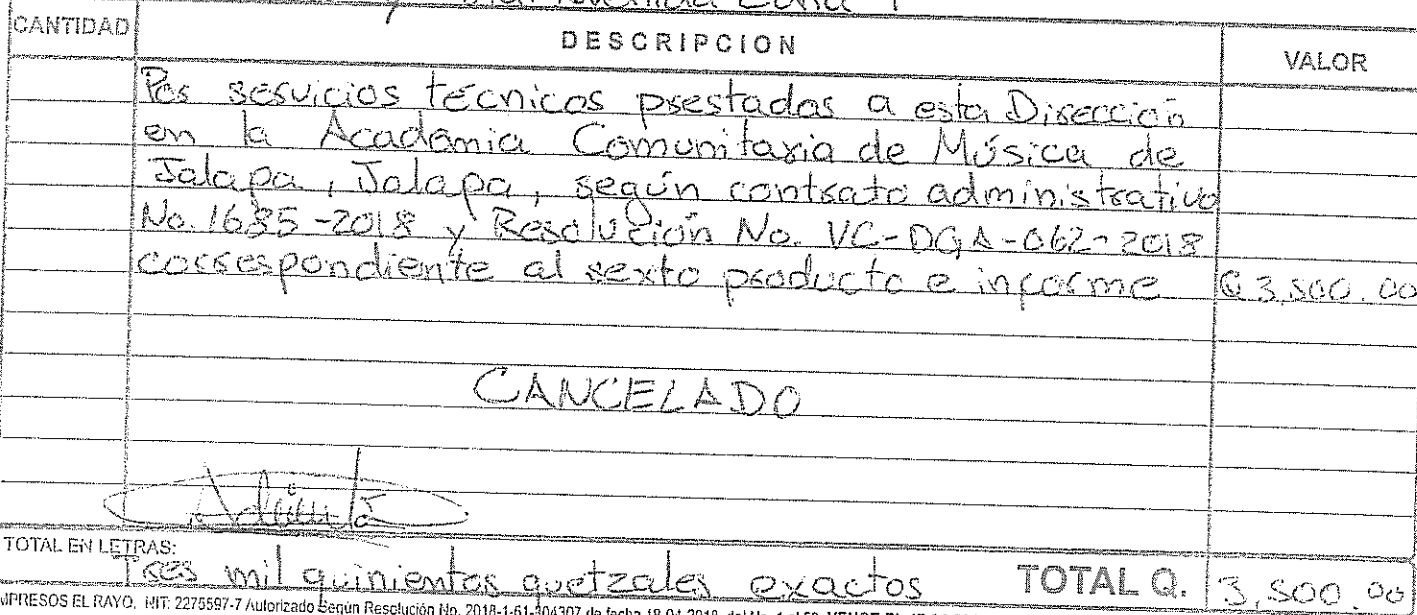 Avenida Zona 1
CANTIDAD DESCRIPCION VALOR
Por servicios técnicos prestados a esta Dirección
en la Academia Comunitaria de Música de
Jalapa, Jalapa, según contrato administrativo
No. 1685-2018 y Resolución No. VC-DGA-062-2018
correspondiente al sexto producto e informe Q 3,500.00
CANCELADO
TOTAL EN LETRAS:
Tres mil quinientos quetzales exactos TOTAL Q. 3,500.00
MPRESOS EL RAYO. NIT: 2275597-7 Autorizado Según Resolución No. 2018-1-61-304307 de fecha 18-04-2018